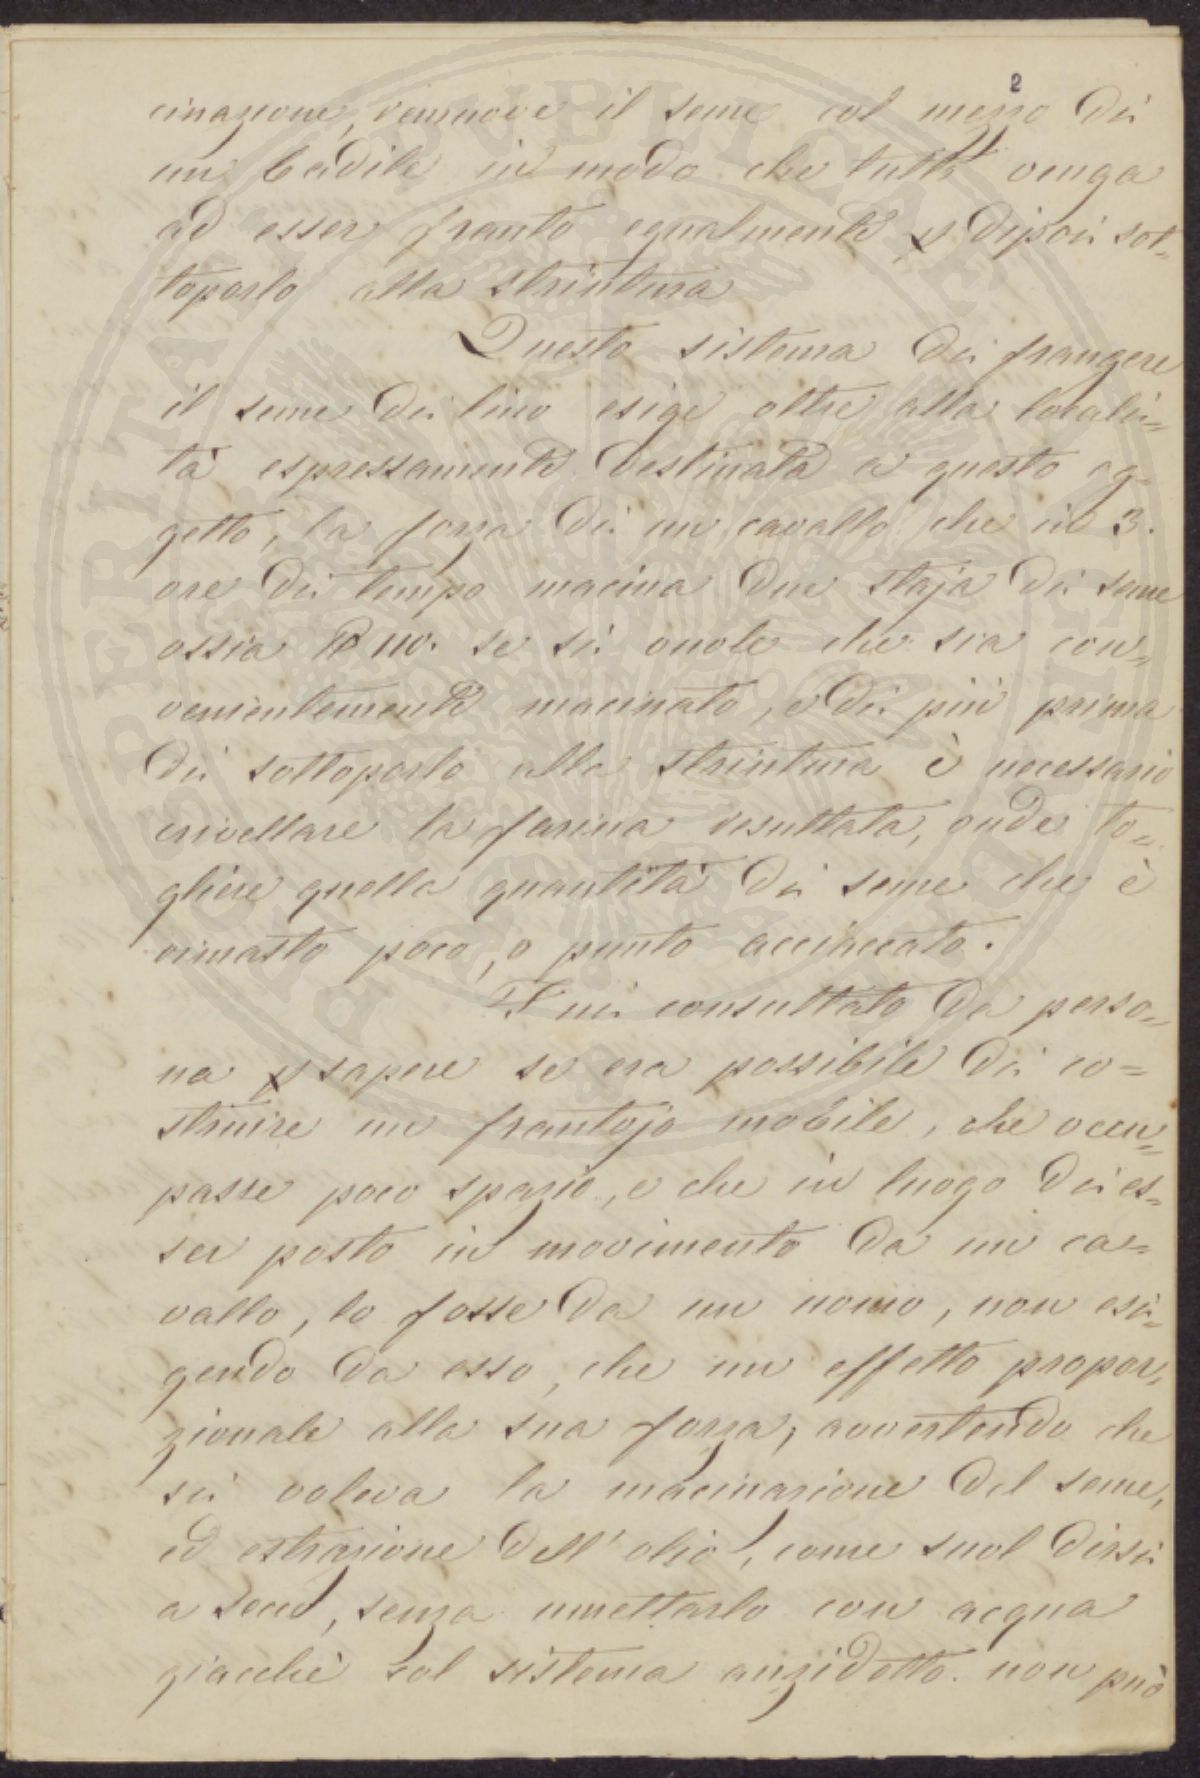 2
cinazione, remuove il seme col mezzo di
un badile in modo che tutto venga
ad esser franto egualmente p dipoi sot=
toporlo alla strintura
Questo sistema di frangere
il seme di lino esige oltre alla locali=
tà espressamente destinata a questo og=
getto, la forza di un cavallo che in 3.
ore di tempo macina due staja di seme
ossia ℔ 110. se si vuole che sia con=
venientemente macinato, e di più prima
di sottoporlo alla strintura è necessario
crivellare la farina resultata, onde to=
gliere quella quantità di seme che è
rimasto poco, o punto acciaccato.
Fui consultato da perso=
na p sapere se era possibile di co=
struire un frantojo mobile, che occu=
passe poco spazio, e che in luogo di es=
ser posto in movimento da un ca=
vallo, lo fosse da un uomo, non esi=
gendo da esso, che un effetto propor=
zionale alla sua forza, avvertendo che
si voleva la macinazione del seme,
ed estrazione dell' olio, come suol dirsi
a secco, senza umettarlo con acqua
giacchè col sistema anzidetto non può
PROSPERITATI PUBLICAE